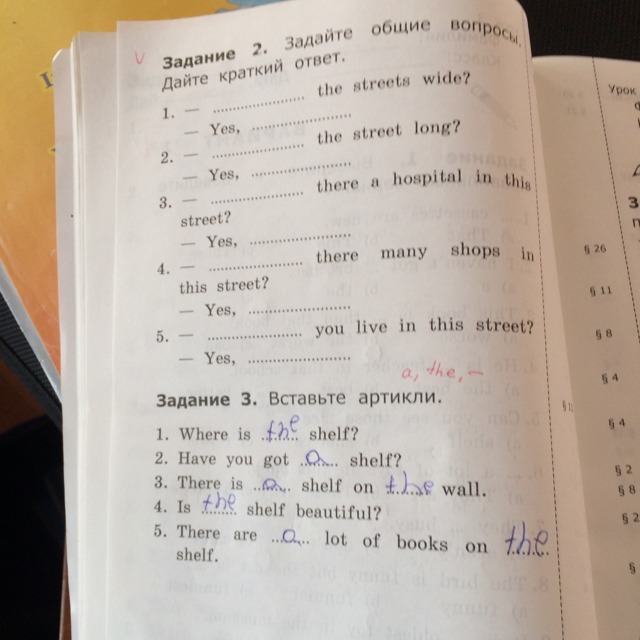 V Задание 2. Задайте общие вопросы.
Дайте краткий ответ.
1. — .................... the streets wide?
— Yes, .....................
2. — .................... the street long?
— Yes, .....................
3. — .................... there a hospital in this
street?
— Yes, .....................
4. — .................... there many shops in
this street?
— Yes, .....................
5. — .................... you live in this street?
— Yes, .....................
a, the, —
Задание 3. Вставьте артикли.
1. Where is the shelf?
2. Have you got a shelf?
3. There is a shelf on the wall.
4. Is the shelf beautiful?
5. There are a lot of books on the
shelf.
Урок
§ 26
§ 11
§ 8
§ 4
§ 4
§ 2
§ 8
§ 2
§